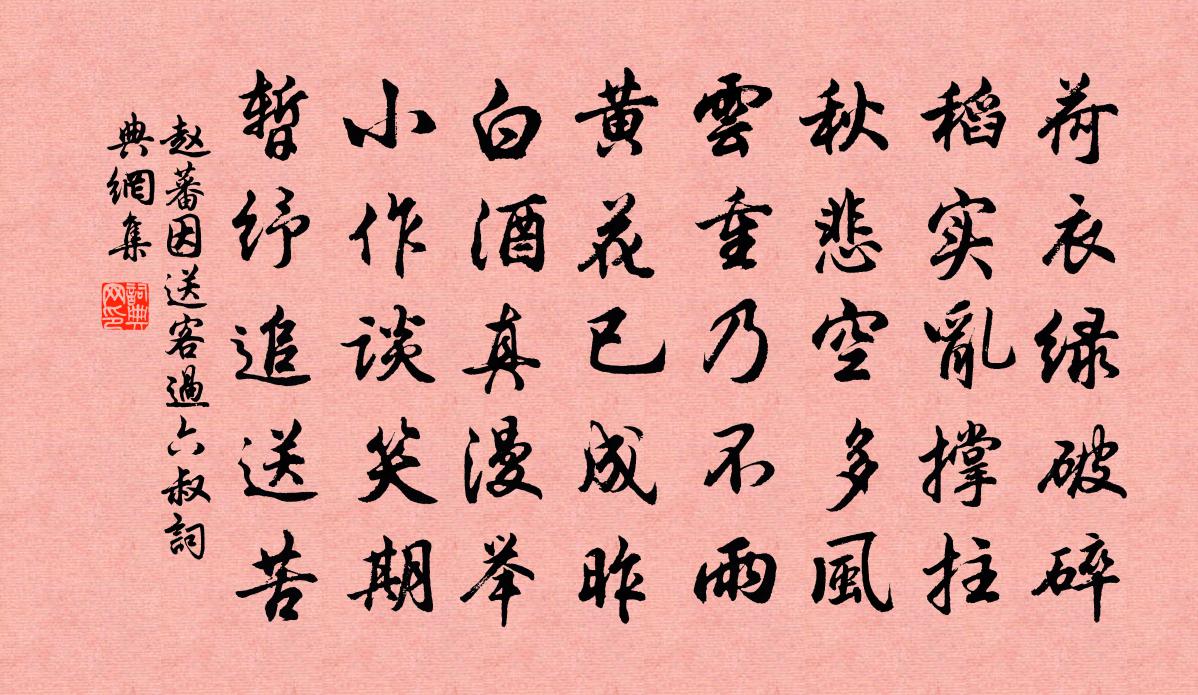 荷衣绿破碎
稻实亂撑拄
秋悲空多風
雲重乃不雨
黄花已成昨
白酒真漫举
小作谈笑期
暫纾追送苦
赵蕃因送客過六叔詞
典網集
詞典
网印